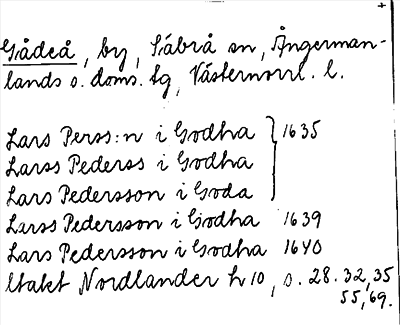 Gådeå, by, Säbrå sn, Ångerman-
lands s. doms. tg, Västernorrl. l.
Lars Perss:n i Godha } 1635
Larss Pederss i Godha
Lars Pedersson i Goda
Larss Pedersson i Godha 1639
Lars Pedersson i Godha 1640
Utakt Nordlander h 10, s. 28. 32, 35
55, 69.